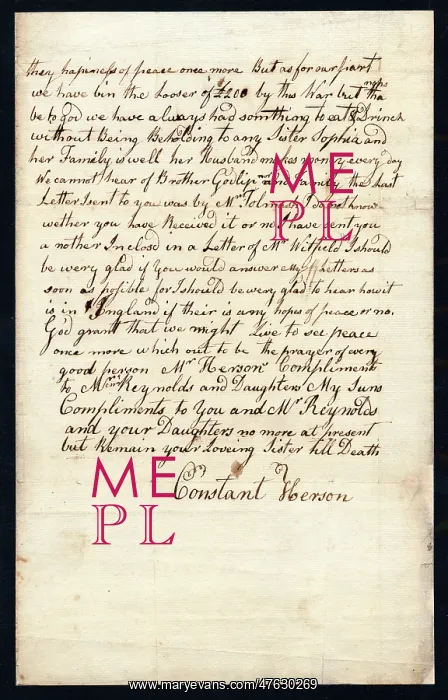 they hapiness of peace once more But as for our part
we have bin the Looser of £200 by this War but thanks
be to god we have always had somthing to eat & Drinck
without Being Beholding to any Sister Sophia and
her Family is well her Husband makes money every day
We cannot hear of Brother and Family the Last
Letter I sent to you was by Mr I do not know
wether you have Received it or no I have sent you
a nother Inclosd in a Letter of Mr Witfield I should
be wery glad if you would answer my Letters as
soon as posible for I should be wery glad to hear how it
is in England if their is any hopes of peace or no.
God grant that we might Live to see peace
once more which out to be the prayer of every
good person Mr Herson Compliments
to Mr Reynolds and Daughters My Suns
Compliments to You and Mr Reynolds
and your Daughters no more at present
but Remain your Loveing Sister till Death
Constant Herson
ME
PL
ME
PL
www.maryevans.com/47630269